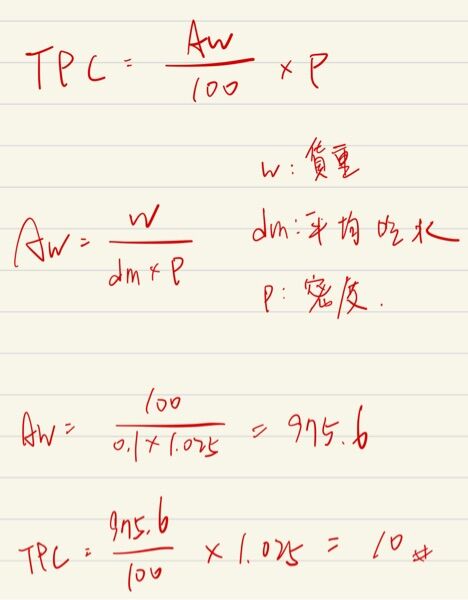 TPC = Aw/100 × ρ
w: 貨重
Aw = w/dm×ρ
dm: 平均吃水
ρ: 密度.
Aw = 100/0.1×1.025 = 975.6
TPC = 975.6/100 × 1.025 = 10 #